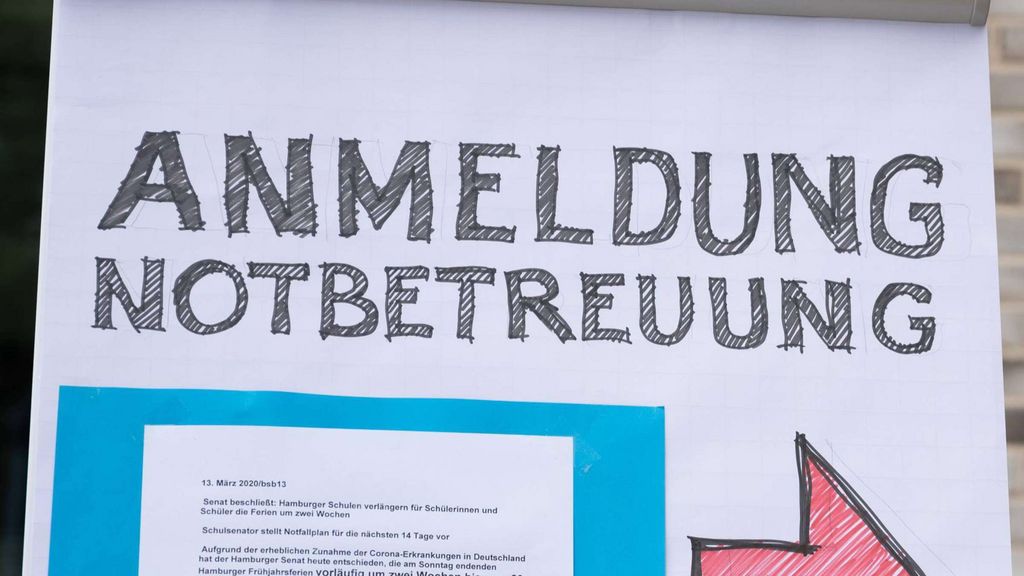 ANMELDUNG
NOTBETREUUNG
13. März 2020/bsb13
Senat beschließt: Hamburger Schulen verlängern für Schülerinnen und
Schüler die Ferien um zwei Wochen
Schulsenator stellt Notfallplan für die nächsten 14 Tage vor
Aufgrund der erheblichen Zunahme der Corona-Erkrankungen in Deutschland
hat der Hamburger Senat heute entschieden, die am Sonntag endenden
Hamburger Frühjahrsferien vorläufig um zwei Wochen